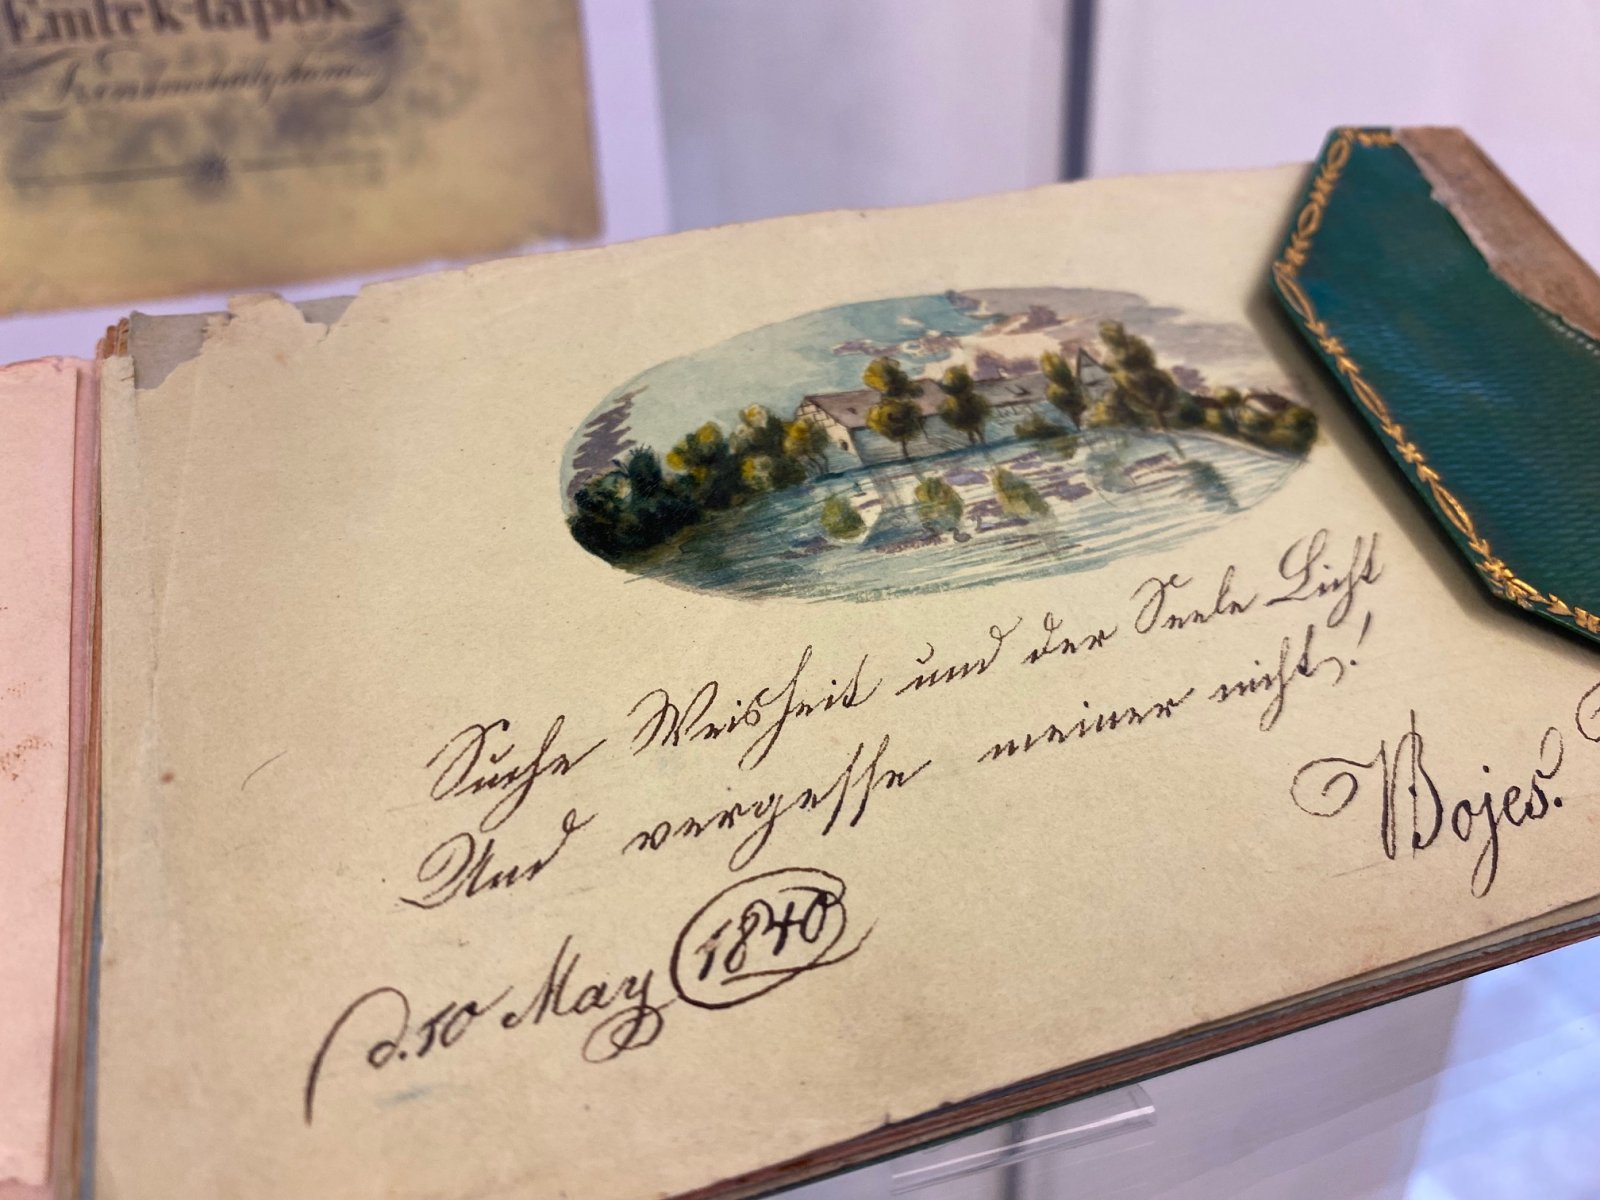 Emlék-lapok
Suche Weisheit und der Seele Licht
Und vergesse meiner nicht!
Bojes.
d. 10 May 1840